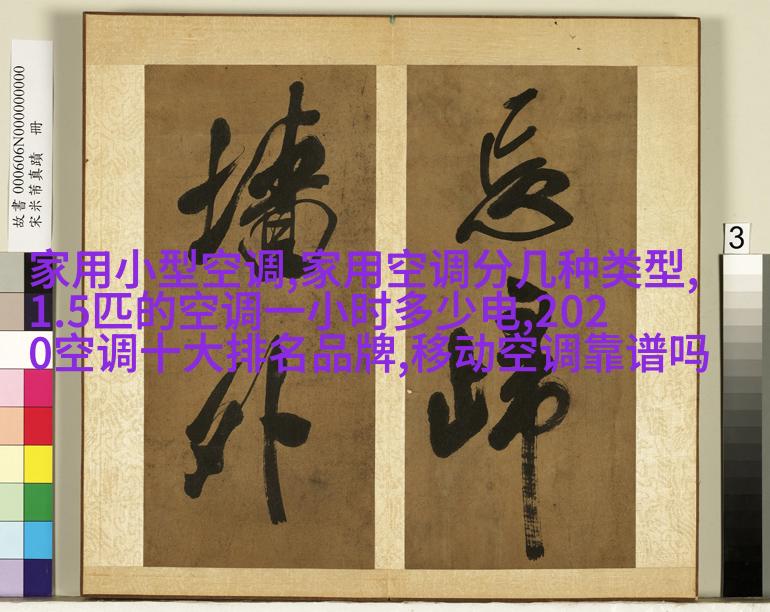 故書 000606N000000000
宋米芾真蹟 冊
3
忘歸
墻外
家用小型空调,家用空调分几种类型,
1.5匹的空调一小时多少电,202
0空调十大排名品牌,移动空调靠谱吗